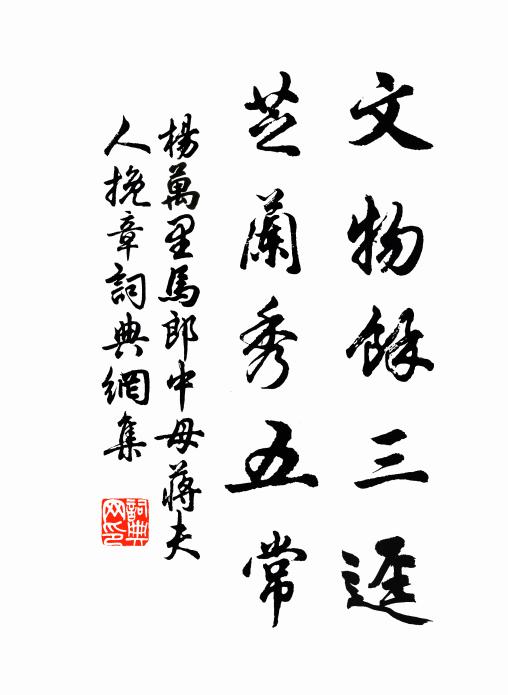 文物餘三逕
芝蘭秀五常
楊萬里馬郎中母蔣夫
人挽章詞典網集
詞典
网印